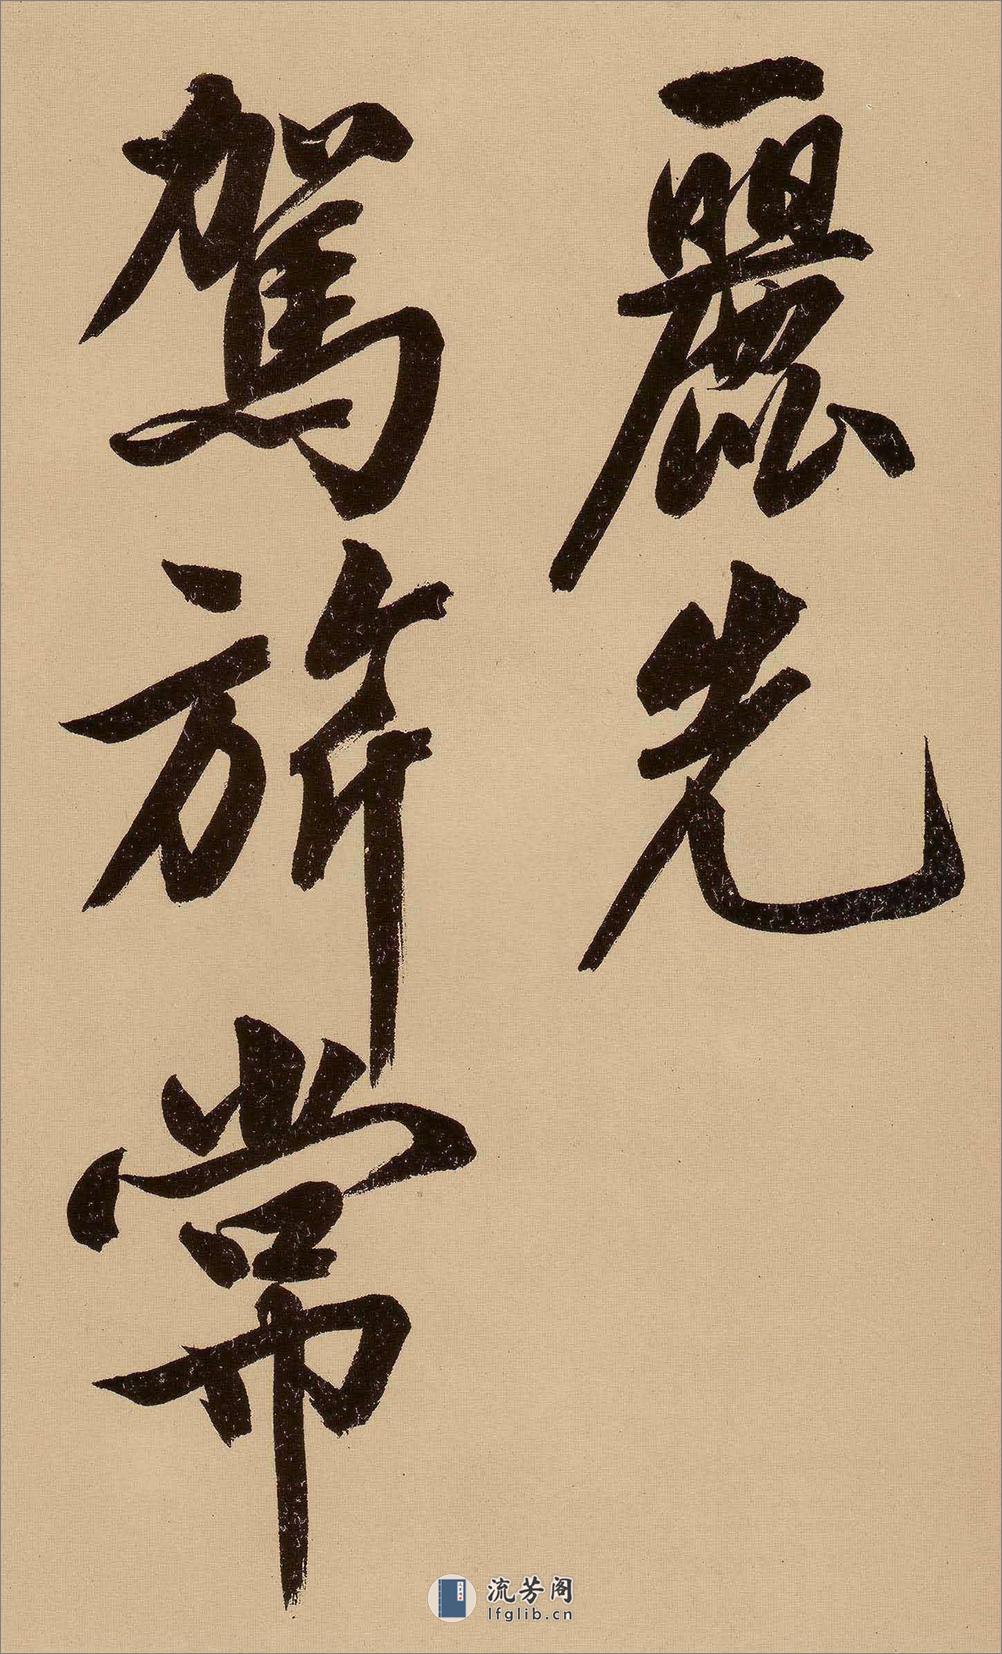 麗先
駕旂常
流芳阁
lfglib.cn